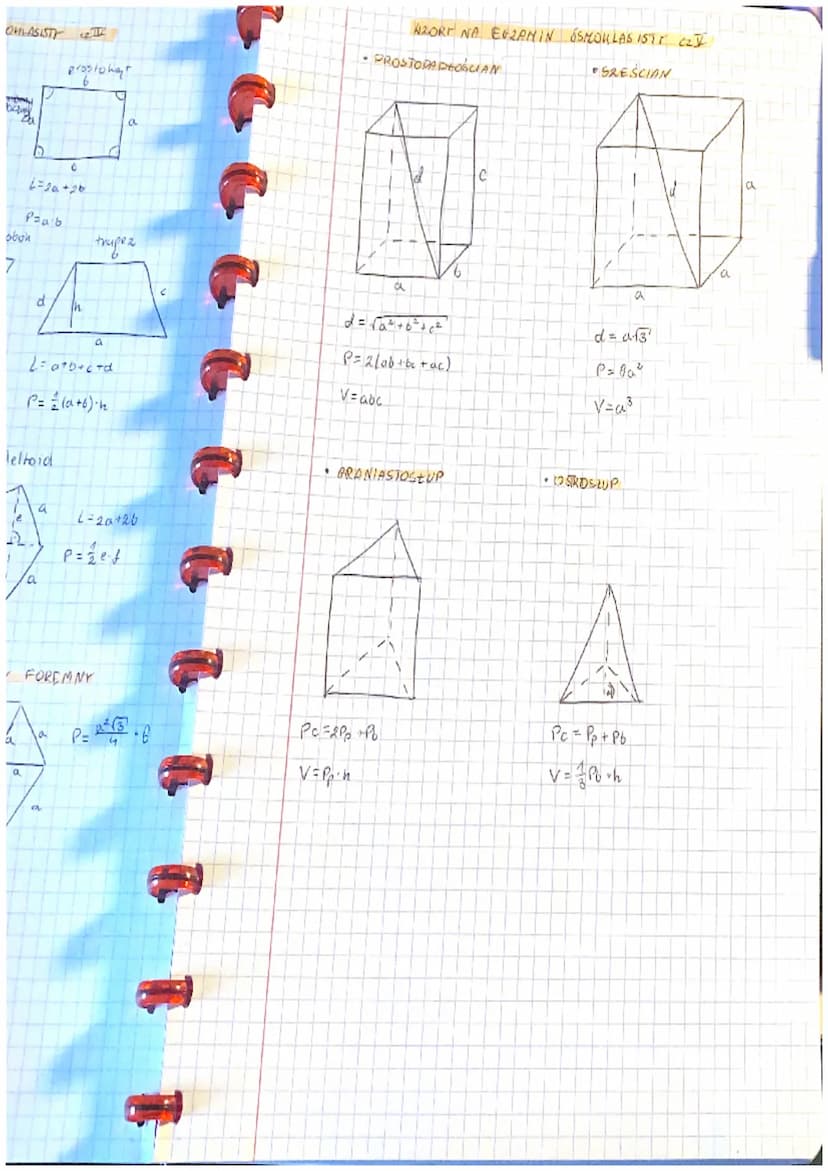 cz IV
prostokąt
b
a
b
L=2a+2b
P=a·b
trapez
b
d
h
c
a
L=a+b+c+d
P=1/2(a+b)·h
deltoid
a
e
a
L=2a+2b
P=1/2 e·f
FOREMNY
a
a
a
a
P=a²√3/4 · 6
WZORY NA EGZAMIN ÓSMOKLASISTY cz V
• PROSTOPADŁOŚCIAN
d
c
b
a
d=√a²+b²+c²
P=2(ab+bc+ac)
V=abc
• SZEŚCIAN
d
a
a
a
d=a√3
P=6a²
V=a³
• GRANIASTOSŁUP
Pc=2Pp+Pb
V=Pp·h
• OSTROSŁUP
Pc=Pp+Pb
V=1/3Pb·h